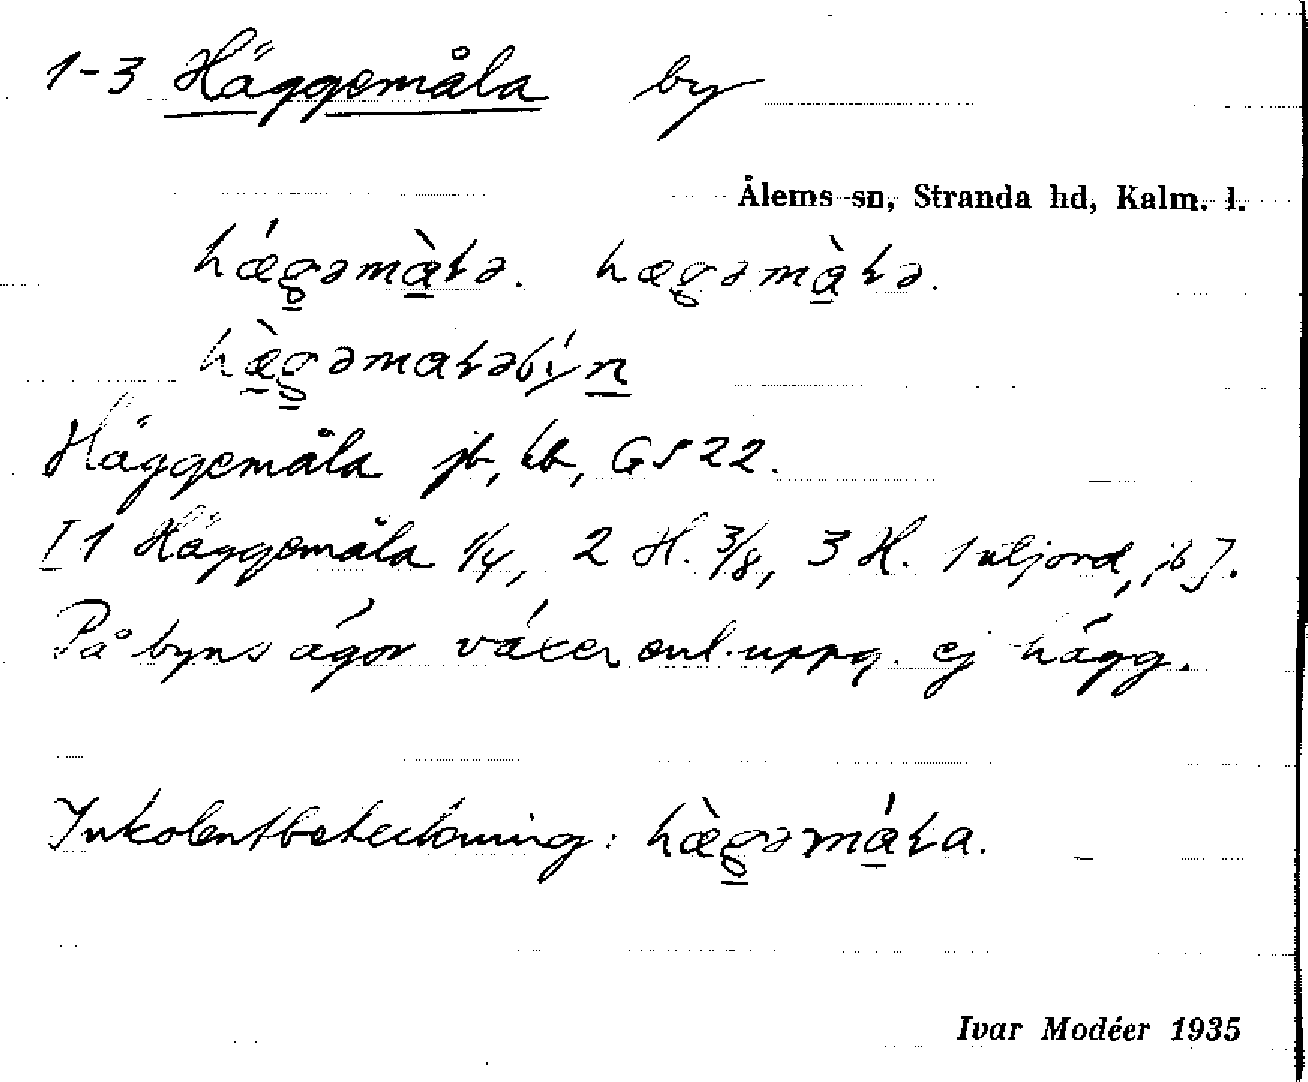 1-3 Häggemåla by
Ålems sn, Stranda hd, Kalm. l.
hǽgəmàɫə. hægəmàɫə.
hæ̀gəmaɫəbýn
Häggemåla jb, kb, GS 22.
[1 Häggemåla 1/4, 2 H. 3/8, 3 H. 1 utjord, jb].
På byns ägor växer enl. uppg. ej hägg.
Inkolentbeteckning: hæ̀gəmáɫa.
Ivar Modéer 1935